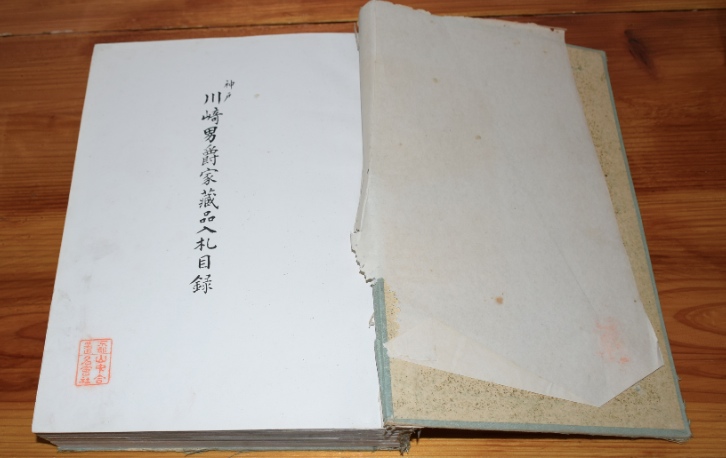 神戸
川崎男爵家蔵品入札目録